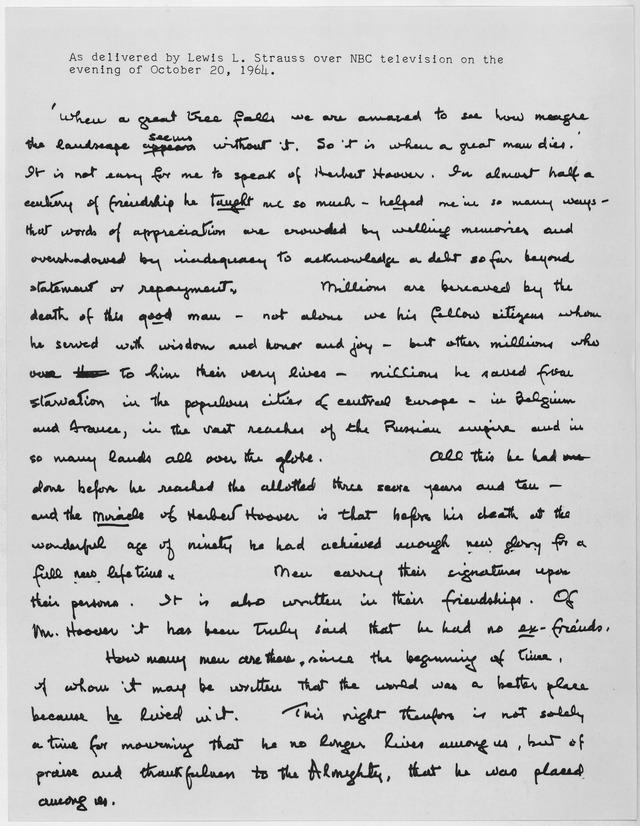 As delivered by Lewis L. Strauss over NBC television on the
evening of October 20, 1964.
'When a great tree falls we are amazed to see how meagre
the landscape appears seems without it. So it is when a great man dies.'
It is not easy for me to speak of Herbert Hoover. In almost half a
century of friendship he taught me so much - helped me in so many ways -
that words of appreciation are crowded by welling memories and
overshadowed by inadequacy to acknowledge a debt so far beyond
statement or repayment. Millions are bereaved by the
death of this good man - not alone we his fellow citizens whom
he served with wisdom and honor and joy - but other millions who
owe to him their very lives - millions he saved from
starvation in the populous cities of central Europe - in Belgium
and France, in the vast reaches of the Russian empire and in
so many lands all over the globe. All this he had
done before he reached the allotted three score years and ten -
and the miracle of Herbert Hoover is that before his death at the
wonderful age of ninety he had achieved enough new glory for a
full new lifetime. Men carry their signatures upon
their persons. It is also written in their friendships. Of
Mr. Hoover it has been truly said that he had no ex-friends.
How many men are there, since the beginning of time,
of whom it may be written that the world was a better place
because he lived in it. This night therefore is not solely
a time for mourning that he no longer lives among us, but of
praise and thankfulness to the Almighty, that he was placed
among us.